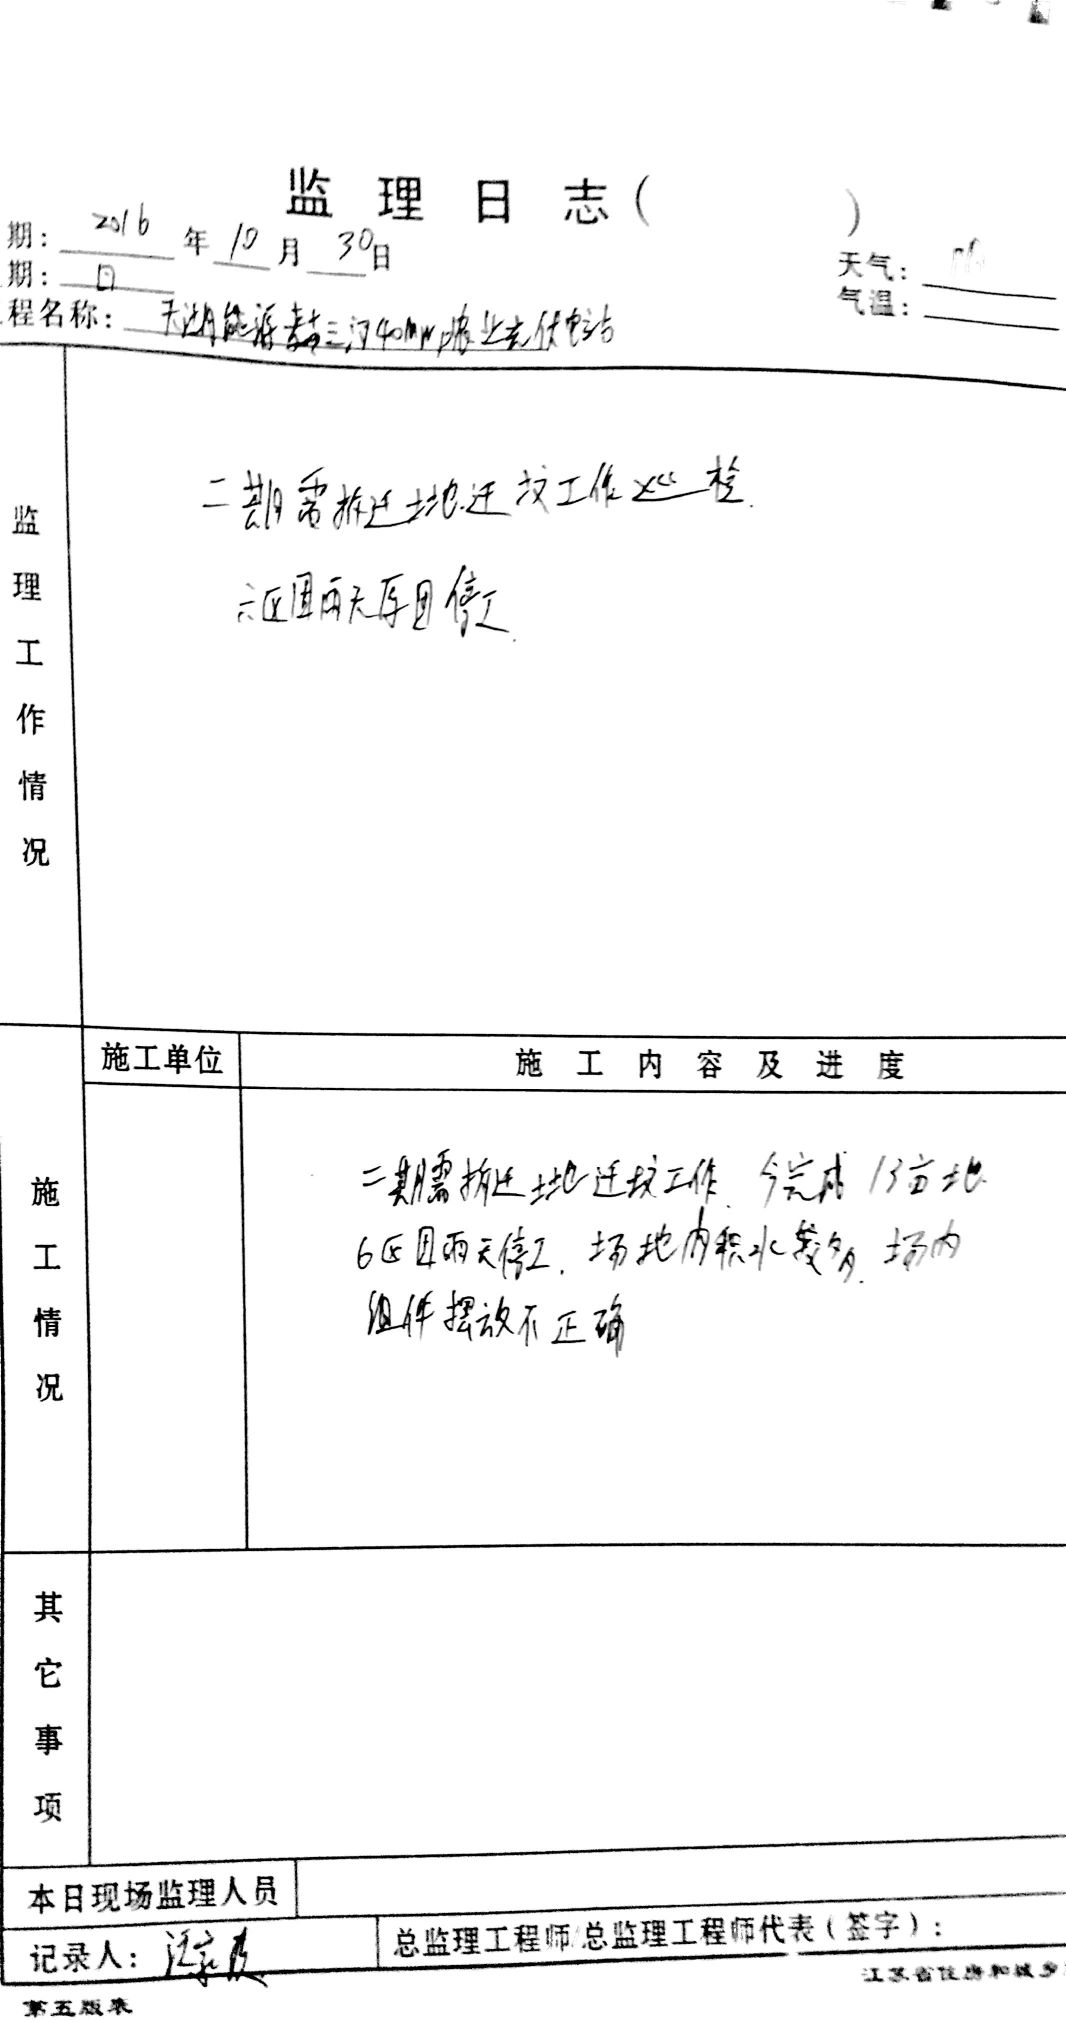 监理日志（ ）
期： 2016 年 10 月 30 日
期： 日
天气：
气温：
程名称： 天湖能源 三河40MWp农业光伏电站
监理工作情况
二期需拆迁土地迁坟工作巡检.
六区因雨天原因停工.
施工单位
施工内容及进度
施工情况
二期需拆迁土地迁坟工作. 今完成13亩地
6区因雨天停工. 场地内积水较多. 场内
组件摆放不正确
其它事项
本日现场监理人员
记录人： 汪
总监理工程师/总监理工程师代表（签字）：
江苏省住房和城乡
第五版表